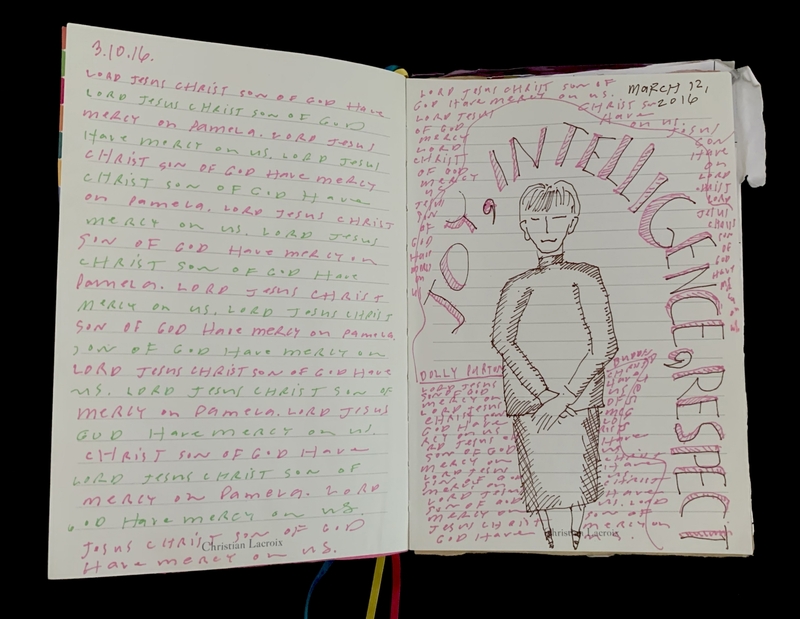 3.10.16.
LORD JESUS CHRIST SON OF GOD HAVE
LORD JESUS CHRIST SON OF GOD
MERCY ON PAMELA. LORD JESUS
HAVE MERCY ON US. LORD JESUS
CHRIST SON OF GOD HAVE MERCY
CHRIST SON OF GOD HAVE
ON PAMELA. LORD JESUS CHRIST
MERCY ON US. LORD JESUS
SON OF GOD HAVE MERCY ON
CHRIST SON OF GOD HAVE
PAMELA. LORD JESUS CHRIST
MERCY ON US. LORD JESUS CHRIST
SON OF GOD HAVE MERCY ON PAMELA.
SON OF GOD HAVE MERCY ON
LORD JESUS CHRIST SON OF GOD HAVE
US. LORD JESUS CHRIST SON OF
MERCY ON PAMELA. LORD JESUS
GOD HAVE MERCY ON US.
CHRIST SON OF GOD HAVE
LORD JESUS CHRIST SON OF
MERCY ON PAMELA. LORD
GOD HAVE MERCY ON US
JESUS CHRIST SON OF GOD
HAVE MERCY ON US.
Christian Lacroix
LORD JESUS CHRIST SON OF
GOD HAVE MERCY ON US.
MARCH 12,
2016
LORD JESUS
CHRIST SON
OF GOD
HAVE
MERCY
ON US.
LORD
CHRIST
OF GOD
MERCY
US
JOY, INTELLIGENCE & RESPECT
JESUS
SON
OF
GOD
HAVE
JESUS
SON
HAVE
ON
LORD
JESUS
CHRIST
SON
OF
GOD
HAVE
DOLLY PARTON
LORD JESUS
SON OF GOD
MERCY ON
LORD JESUS
CHRIST SON
GOD HAVE
MERCY ON US.
LORD JESUS
SON OF GOD
MERCY ON
LORD JESUS
SON OF GOD
MERCY ON
LORD JESUS
SON OF GOD
MERCY ON
JESUS CHRIST
GOD HAVE
HAVE
CHRIST
HAVE
CHRIST
HAVE
US. LORD
SON OF
MERCY ON
Christian Lacroix